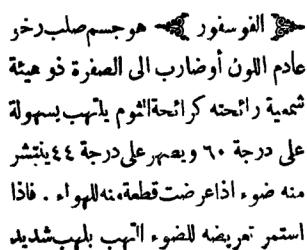 الفوسفور هو جسم صلب رخو
عادم اللون أو ضارب الى الصفرة ذو هيئة
شمعية رائحته كرائحة الثوم يلتهب بسهولة
على درجة ٦٠ ويصهر على درجة ٤٤ ينتشر
منه ضوء اذا عرضت قطعة منه للهواء . فاذا
استمر تعريضه للضوء التهب بلهب شديد